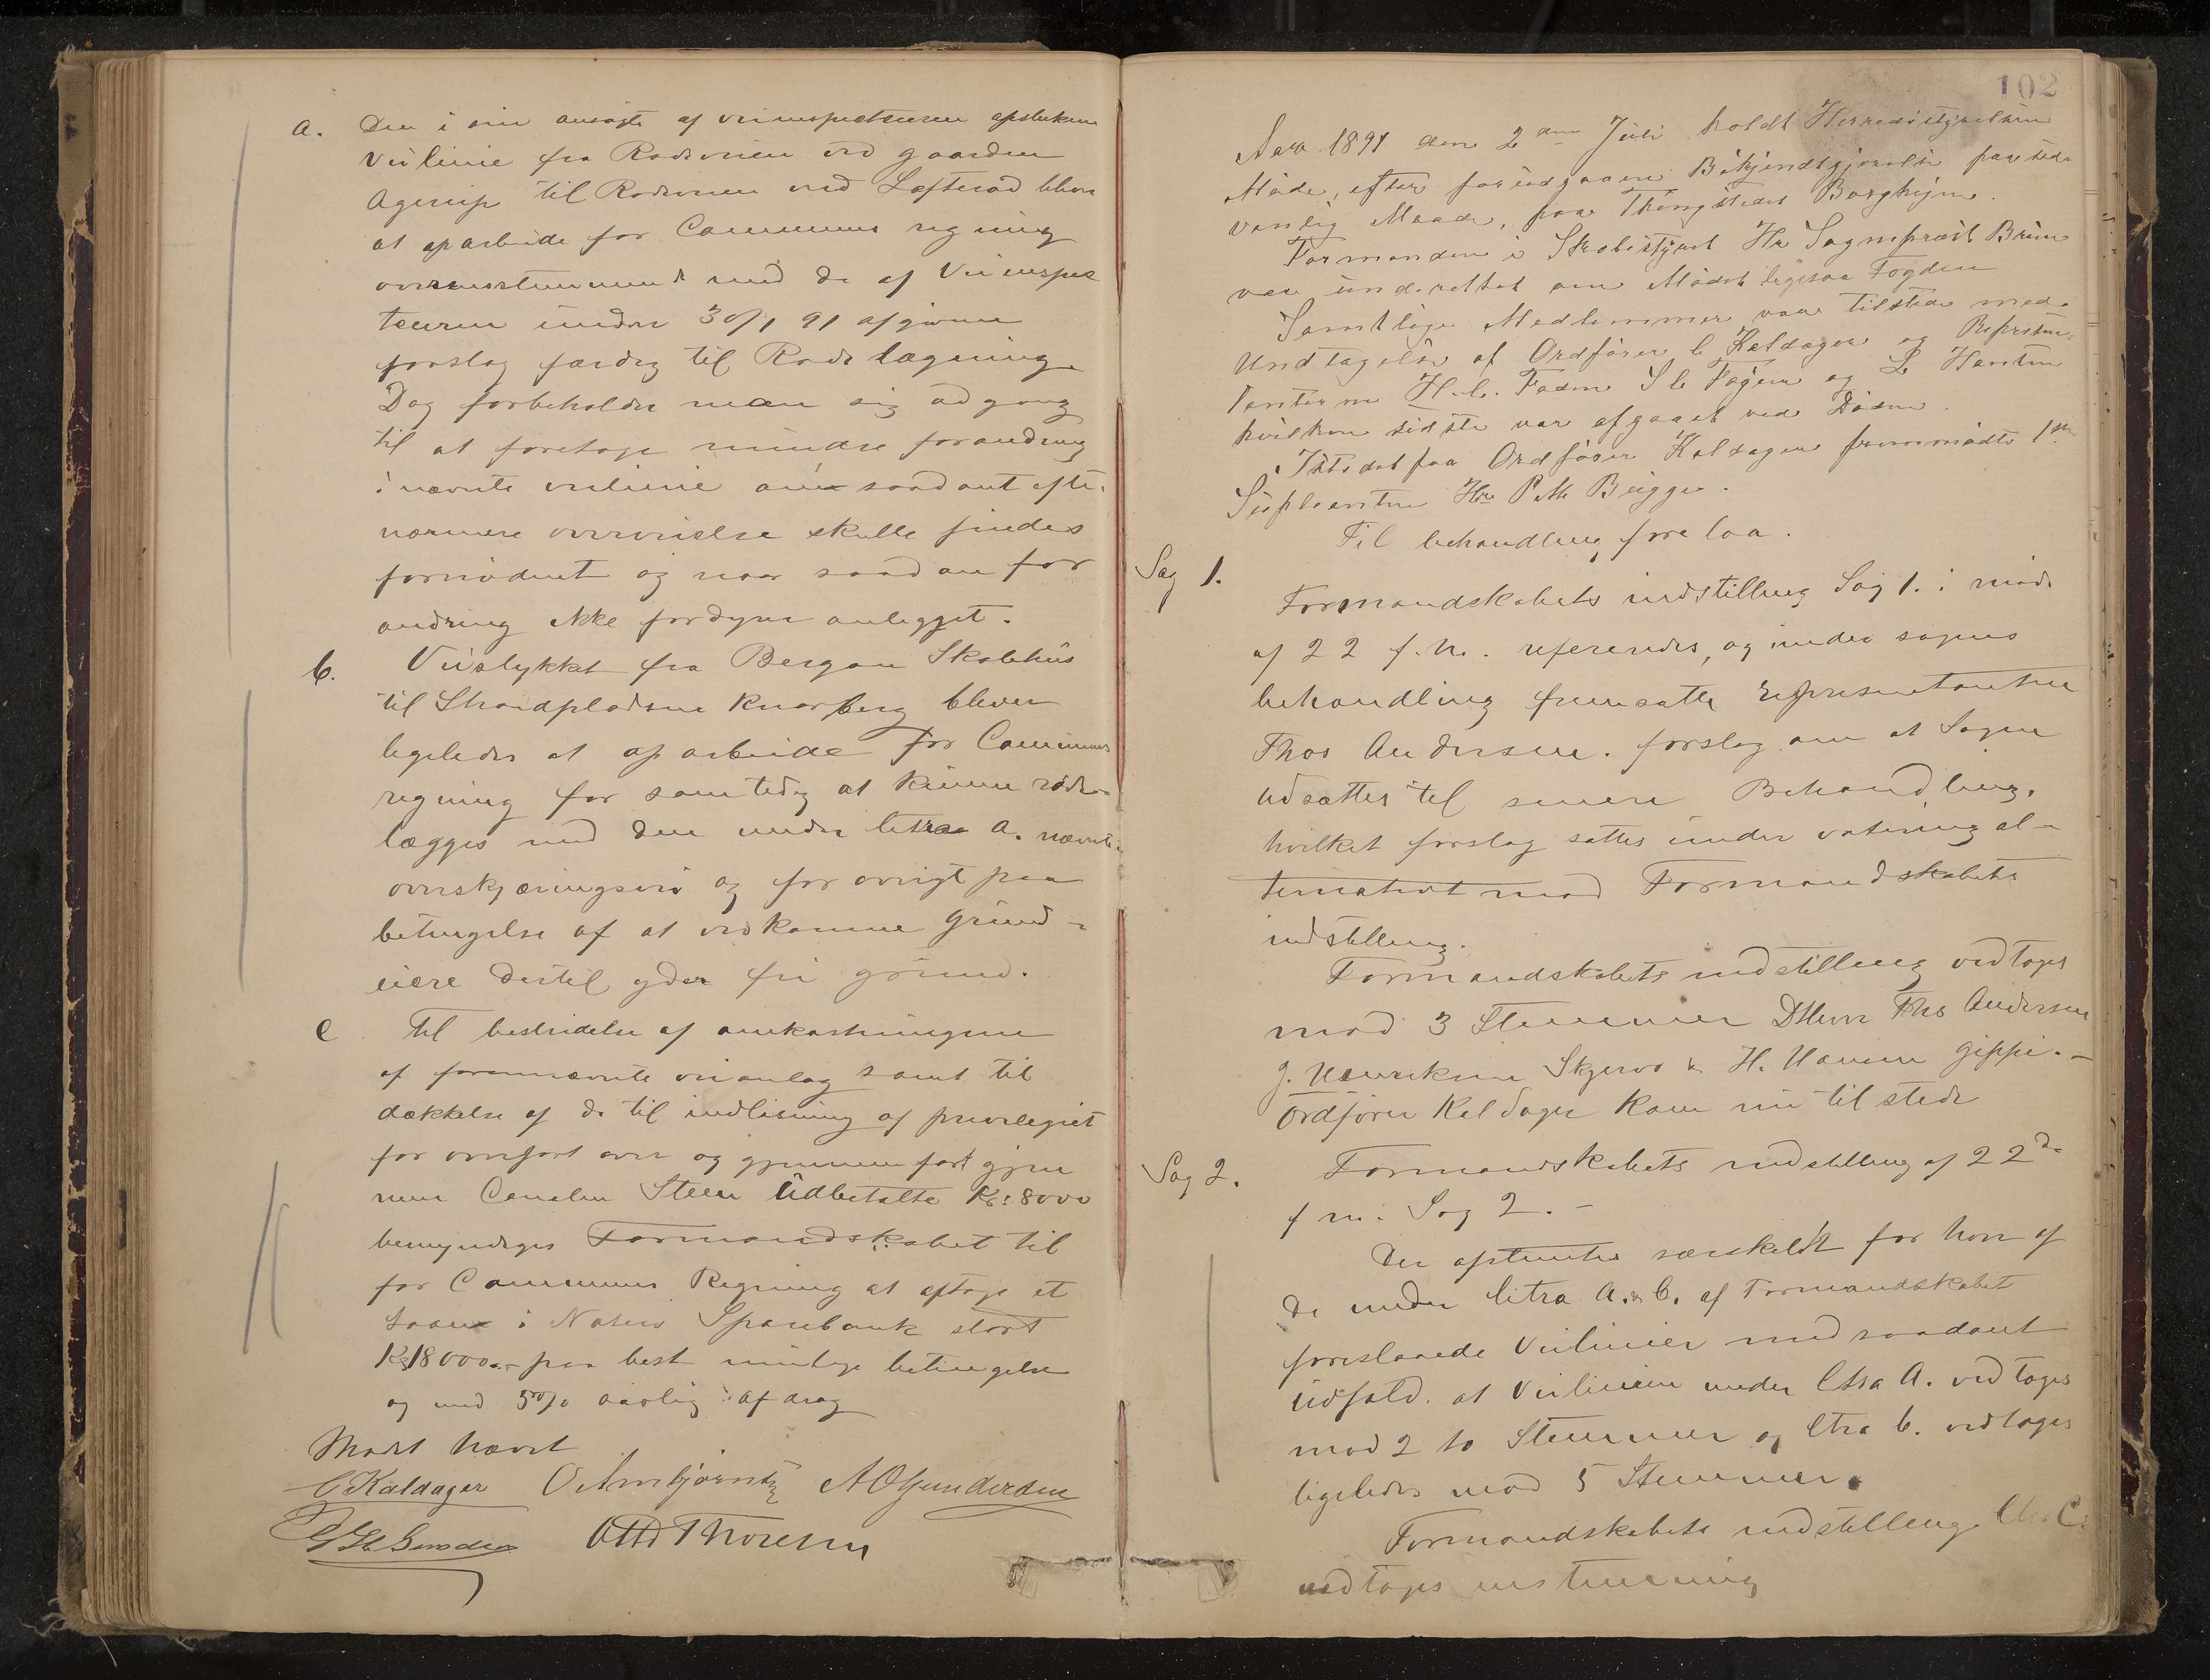 a. Den i sin ansøgte af veiinspecteuren opstukne
Veilinie fra Rodeveien ved gaarden
Agerup til Rodeveien ved Løfterød bliver
at oparbeide for Communens regning
overensstemmend med de af Veiinspec
teuren under 30/1 91 afgivne
forslag færdig til Rodelægning.
Dog forbeholder man sig adgang
til at foretage mindre forandring
i nævnte veilinie om saadant efter
nærmere overveielse skulle findes
fornødent og naar saadan for
andring ikke fordyrer anlegget.
b. Veistykket fra Bergan Skolehus
til Strandpladsene Knarberg bliver
ligeledes at oparbeide for Communens
regning for samtidig at kunne rode-
lægges med den under litra a. nævnte
overskjæringsvei og for øvrigt paa
betingelse af at vedkomne Grund-
eiere dertil yder fri grund.
c Til bestridelse af omkostningerne
af forannævnte veianlæg samt til
dækkelse af de til indløsning af privilegiet
for overfart over og gjennemfart gjen
nem Canalen Steen Udbetalte Kr: 8000
bemyndiges Formandskabet til
for Communens Regning at optage et
Laan i Nøterø Sparebank stort
Kr 18000.- paa best mulige betingelse
og med 5% aarlig afdrag
Mødet hævet
C Kaldager O Arnbjørnsen A O Gundersen
Otto Thoresen
102
Aar 1891 den 2den Juli holdt Herredsstyrelsen
Møde, efter forudgaaen Bekjendtgjørelse paa sed-
vanlig Maade, paa Thingstedet Borgheim.
Formanden i Skolestyret Hr Sognepræst Bruun
var underrettet om Mødet ligesaa Fogden
Samtlige Medlemmer var tilstede med
Undtagelse af Ordfører C Kaldager og Represen-
tanterne H. C. Fadum S C Fagern og L Hansen
hvilken sidste var afgaaet ved Døden.
Istedet for Ordfører Kaldager fremmødte 1ste
Supleanten Hr P Mk Bugge.
Til behandling fore laa.
Sag 1.
Formandskabets indstilling Sag 1. i møde
af 22 f. M. refereredes, og under sagens
behandling fremsatte representanten
Thos Andersen. forslag om at Sagen
udsættes til senere Behandling,
hvilket forslag sattes under votering al-
ternativt mod Formandskabets
indstilling.
Formandskabets indstilling vedtoges
mod 3 Stemmer DHerr Ths Andersen
J. Henriksen Skjervø & H. Hansen Gippe.-
Ordfører Kaldager kom nu tilstede
Sag 2.
Formandskabets indstilling af 22de
f m. Sag 2.-
Der afstemtes særskildt for hver af
de under litra A. & b. af Formandskabet
foreslaaede Veilinier med saadant
udfald. at Veilinien under litra A. vedtoges
mod 2 to Stemmer og litra b. vedtoges
ligeledes mod 5 Stemmer.
Formandskabets indstilling litr C.
vedtoges enstemmig